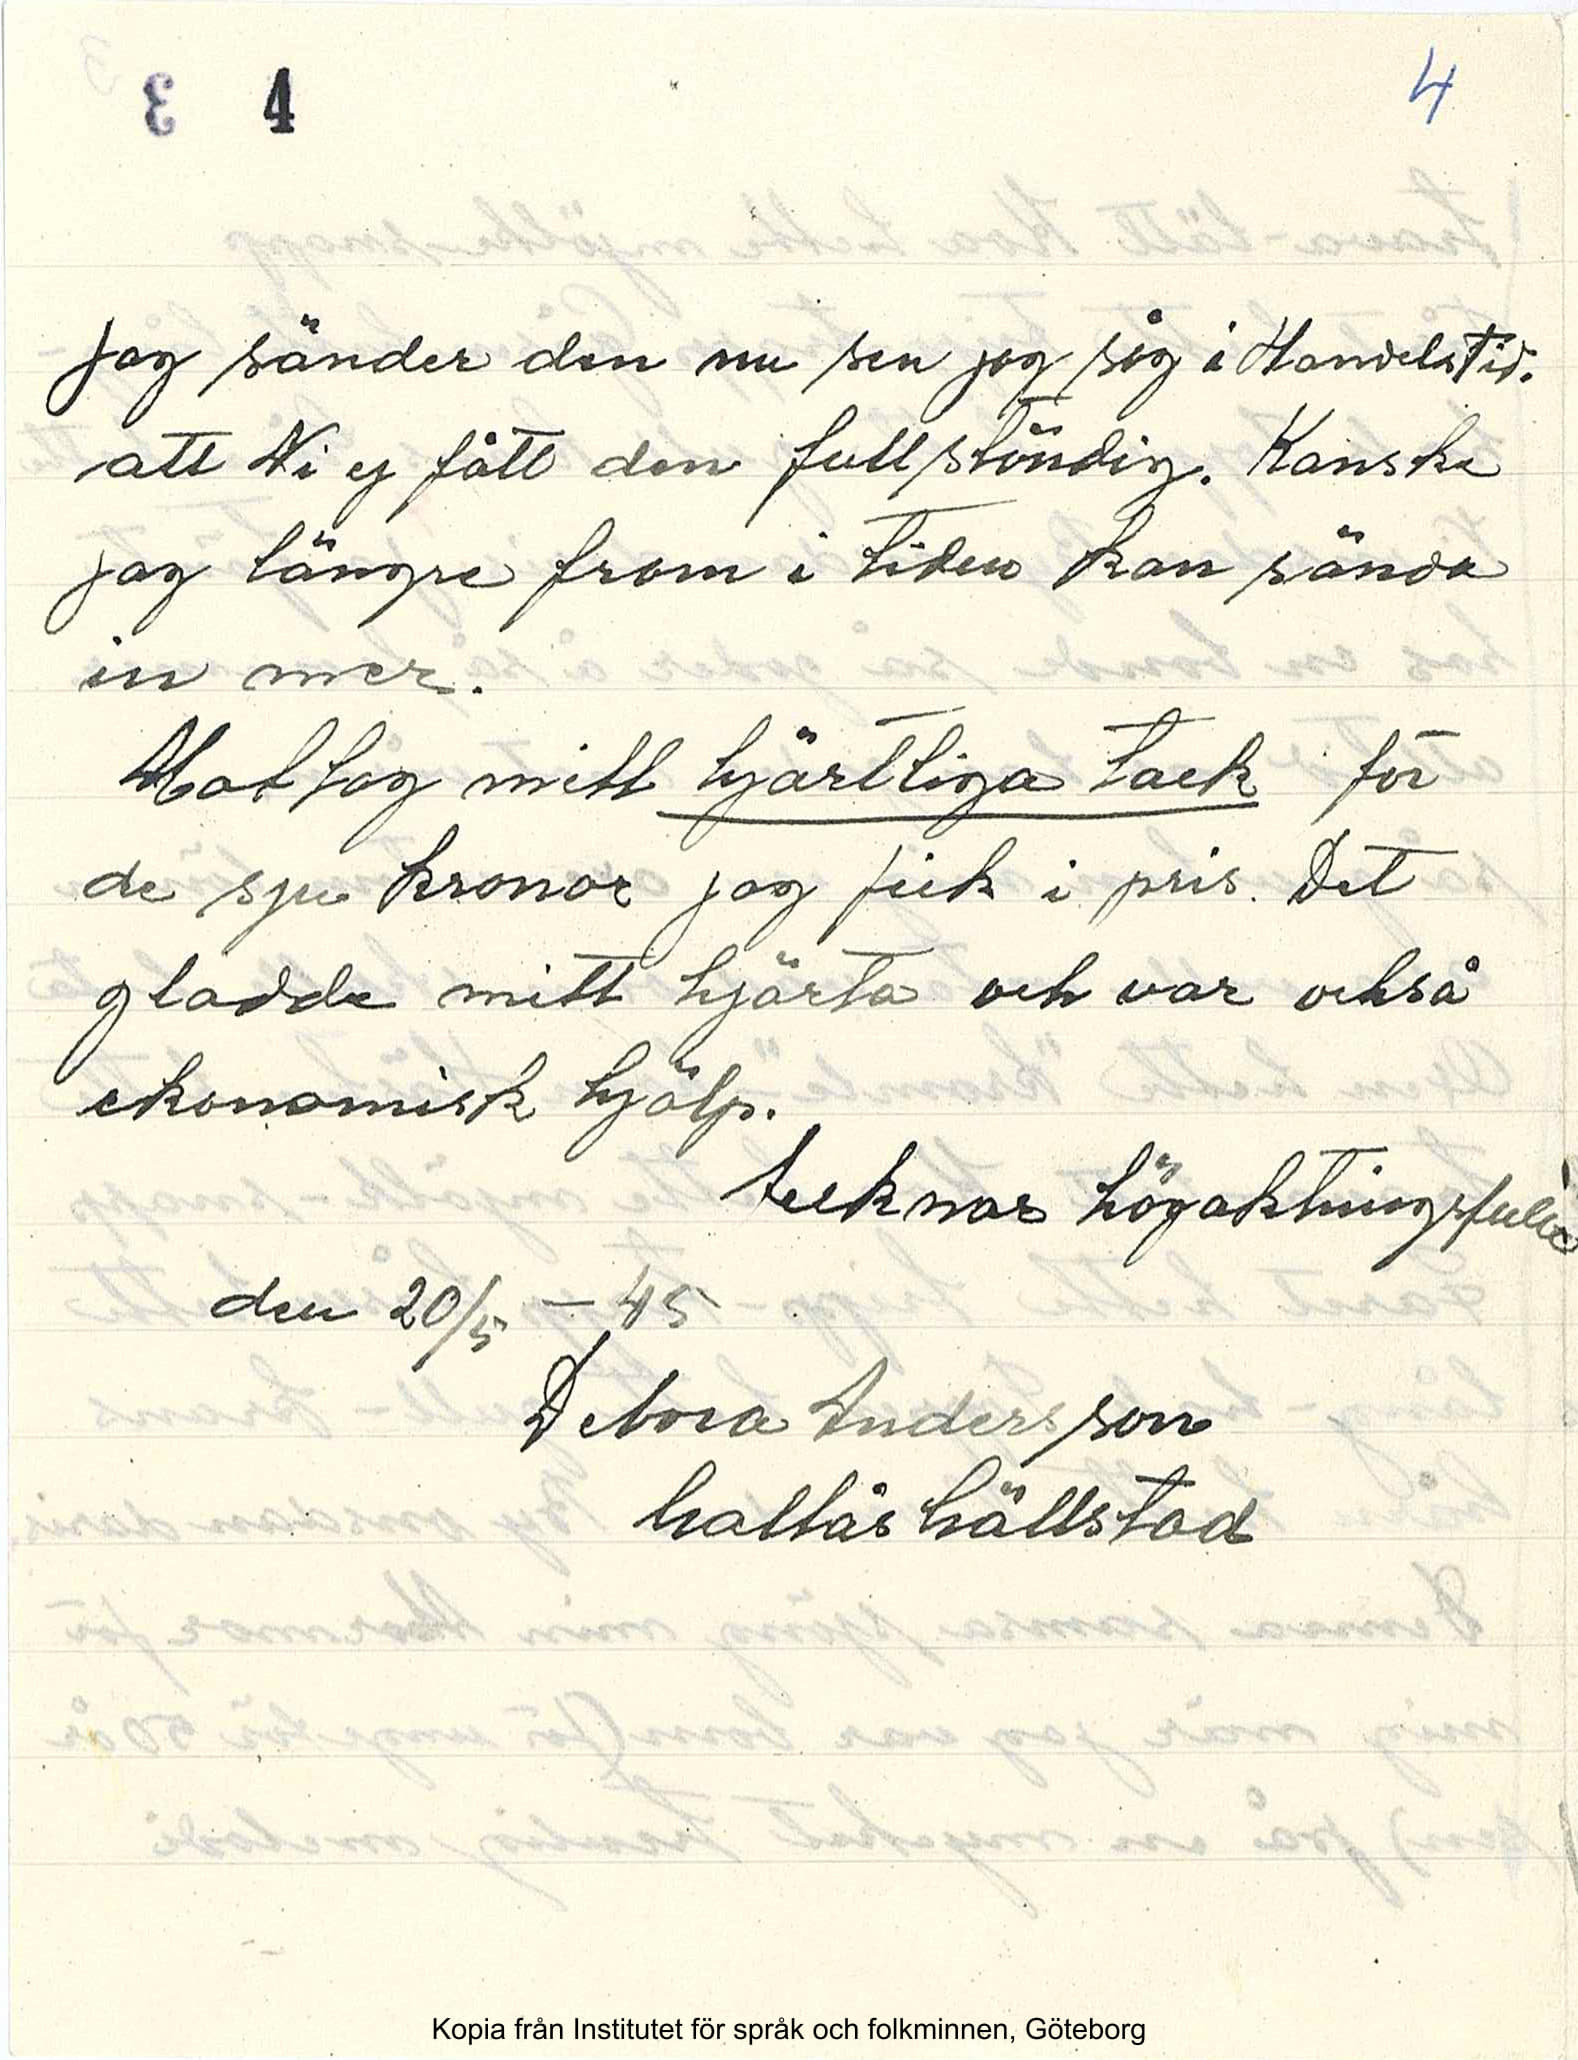 4 4
jag sänder den nu sen jag såg i Handelstid.
att Ni ej fått den fullständig. Kanske
jag längre fram i tiden kan sända
in mer.
Mottag mitt hjärtliga tack för
de sju kronor jag fick i pris. Det
gladde mitt hjärta och var också
ekonomisk hjälp.
tecknar högaktningsfullt
den 20/5 - 45
Debora Andersson
haltås hällstad
Kopia från Institutet för språk och folkminnen, Göteborg